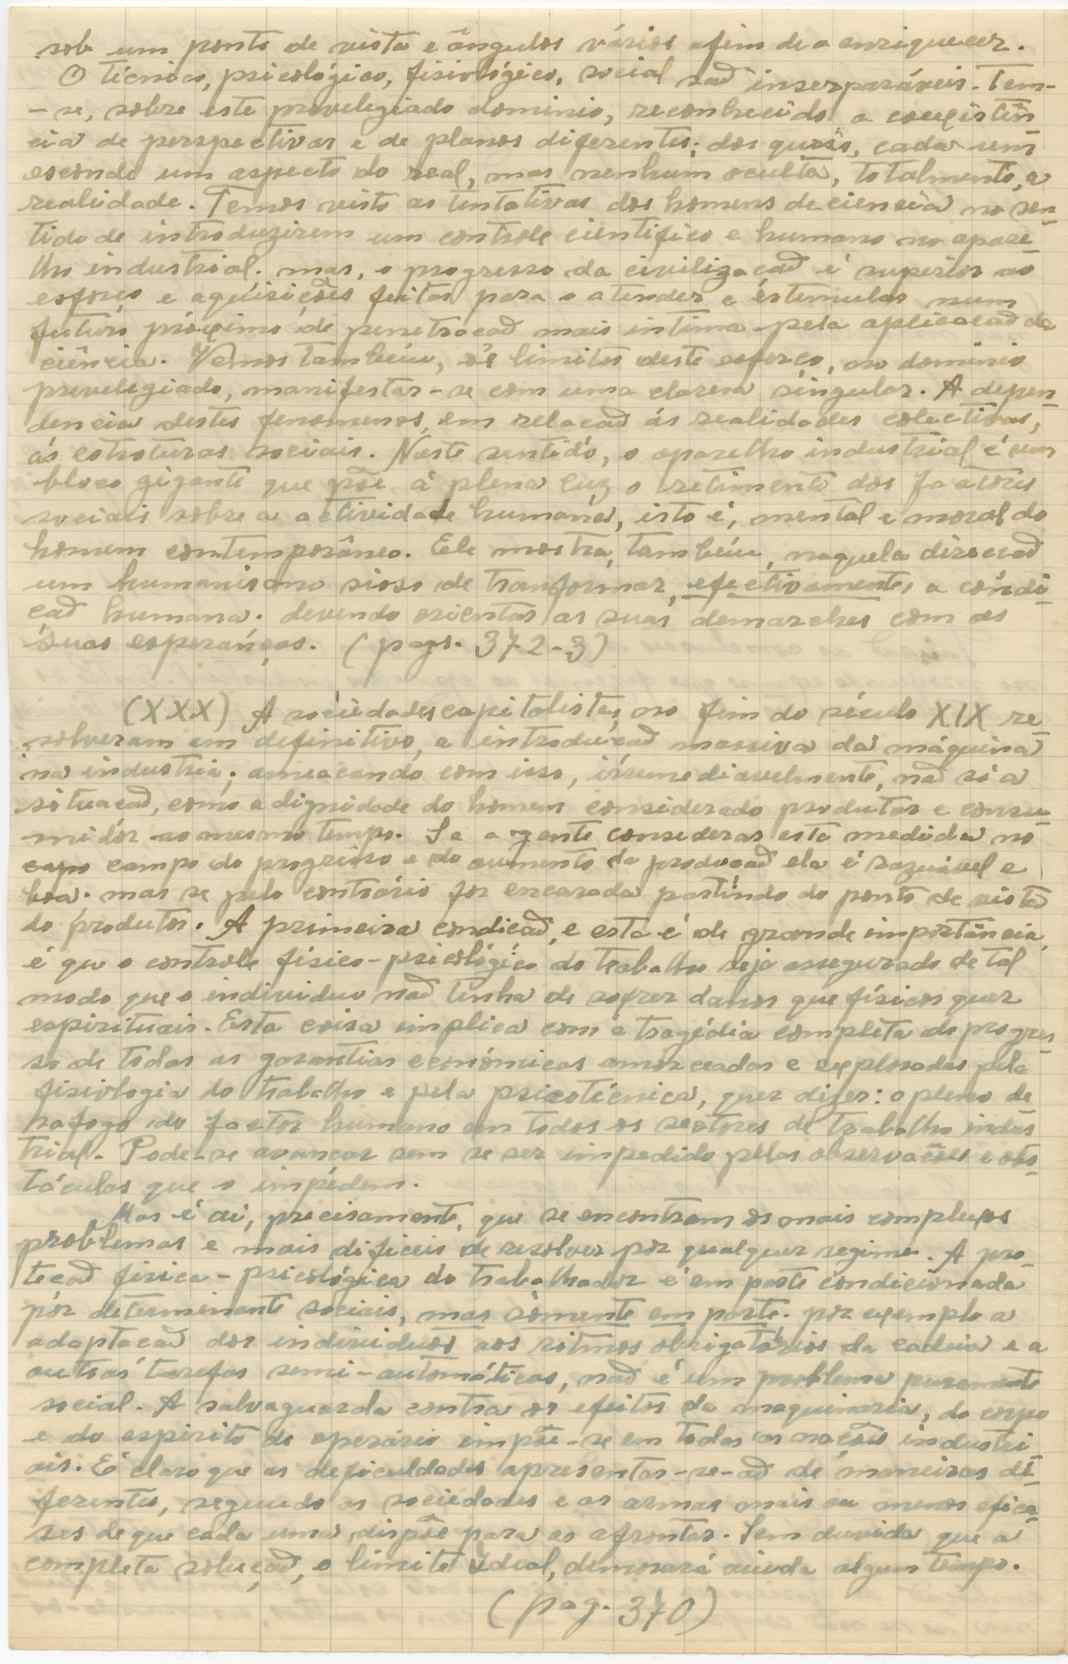 sob um ponto de vista e ângulos vários afim de a enriquecer.
O técnico, psicológico, fisiológico, social saõ inserparáveis. Tem-
-se, sobre este previlegiado dominio, reconhecido a coexistên
cia de perspectivas e de planos diferentes; dos quais, cada um
esconde um aspecto do real, mas nenhum oculta, totalmente, a
realidade. Temos visto as tentativas dos homens de ciencia no sen-
tido de introduzirem um controle cientifico e humano no apare-
lho industrial. mas, o progresso da civilizaçaõ é superior ao
esforço e aquisições feitas para o atender e éstimulos num
futuro próximo de penetraçaõ mais intima pela aplicaçaõ da
ciência. Vemos também, os limites deste esforço, no dominio
previlegiado, manifestar-se com uma clareza singular. A depen
dencia destes fenomenos, em relaçaõ ás realidades colectivas,
ás estruturas sociais. Neste sentido, o aparelho industrial é um
bloco gigante que põe á plena luz o retimento dos factores
sociais sobre a actividade humana, isto é, mental e moral do
homem contemporâneo. Ele mostra, também, naquela direcçaõ
um humanismo sioso de tranformar, efectivamente, a condi-
çaõ humana. devendo orientar as suas demarches com as
suas esperanças. (pags. 372-3)
(XXX) A sociedades capitalistas, no fim do século XIX re-
solveram em definitivo, a introduçaõ massiva da máquina
na industria; ameaçando com isso, irremediavelmente, naõ só a
situaçaõ, como a dignidade do homem considerado produtor e consu-
midor ao mesmo tempo. Se a gente considerar esta medida no
capo campo do progresso e do aumento da produçaõ ela é razuável e
boa. mas se pelo contrário for encarada partindo do ponto de vista
do produtor. A primeira condiçaõ, e esta é de grande importância,
é que o controle fisico-psicológico do trabalho seja assegurado de tal
modo que o individuo naõ tenha de sofrer danos que físicos quer
espirituais. Esta coisa implica com a tragédia completa do progres-
so de todas as garantias económicas amorceadas e exploradas pela
fisiologia do trabalho e pela psicotécnica, quer dizer: o pleno de
safogo do factor humano em todos os sectores de trabalho indus
trial. Pode-se avançar sem se ser impedido pelas observações e obs-
táculos que o impédem.
Mas é ai, precisamente, que se encontram os mais complexos
problemas e mais dificeis de resolver por qualquer regime. A pro-
teçaõ fisica-psicológica do trabalhador é em parte condicionada
pór determinante sociais, mas sómente em parte. por exemplo a
adaptaçaõ dos individuos aos ritmos obrigatórios da cadeia e a
outras tarefas semi-automáticas, naõ é um problema puramente
social. A salvaguarda contra os efeitos da maquinaria, do corpo
e do espirito do operário impõe-se em todas as nações industri-
ais. É claro que as deficuldades apresentar-se-aõ de maneiras di-
ferentes, segundo as sociedades e as armas mais ou menos efica-
zes de que cada uma dispõe para as afrontar. Sem duvida que a
completa soluçaõ, o limite ideal, demorará ainda algum tempo.
(pag. 370)